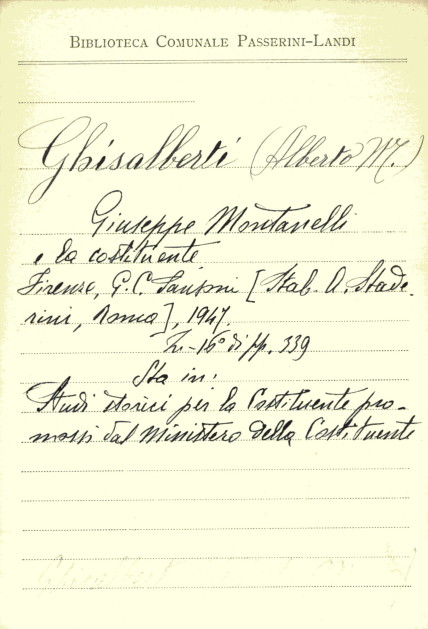 BIBLIOTECA COMUNALE PASSERINI-LANDI
Ghisalberti (Alberto M.)
Giuseppe Montanelli
e la costituente.
Firenze, G. C. Sansoni [Stab. A. Stade-
rini, Roma], 1947.
In-16° di pp. 339
Sta in:
Studi storici per la Costituente pro-
mossi dal Ministero della Costituente